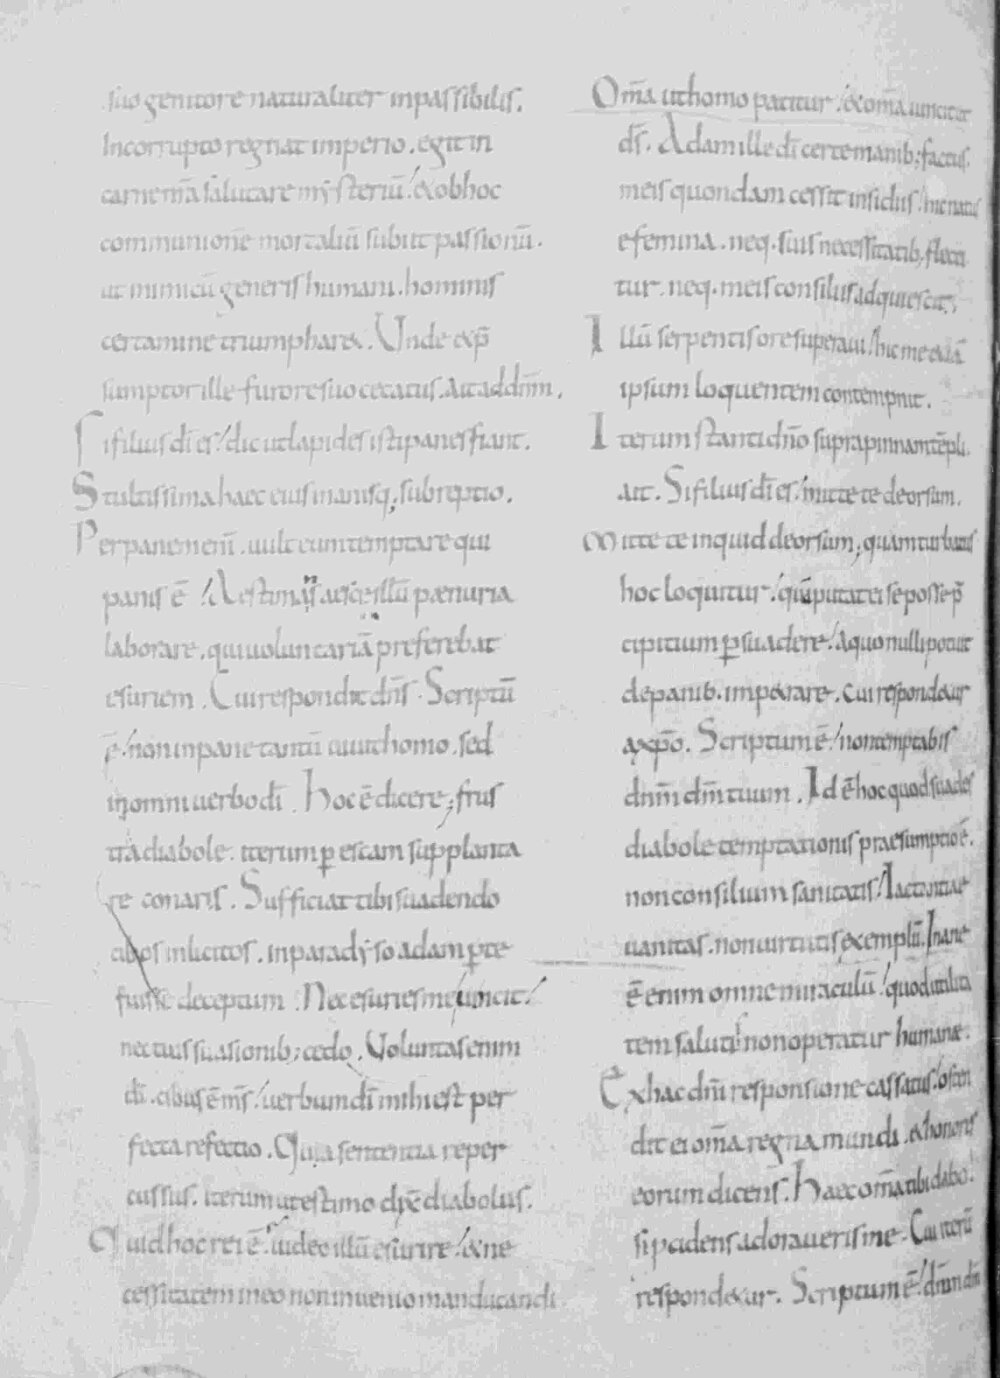 suo genitore naturaliter inpassibilis.
Incorrupto regnat imperio. egit in
carne nr̄a salutare mysteriū. & ob hoc
communionē mortaliū subiit passionū.
ut inimicū generis humani. hominis
certamine triumphar&. Unde & p̄
sumptor ille furore suo cecatus. ait ad dn̄m.
Si filius dī es. dic ut lapides isti panes fiant.
Stultissima haec eius inanisq; subreptio.
Per panem enī. uult eum temptare qui
panis ē. Aestimans illū paenuria
laborare. qui uoluntariā preferebat
esuriem. Cui respondit dn̄s. Scriptū
ē. non in pane tantū uiuit homo. sed
in omni uerbo dī. Hoc ē dicere; frus
tra diabole. iterum p̱ escam supplanta
re conaris. Sufficiat tibi suadendo
cibos inlicitos. in paradyso adam p̱ te
fuisse deceptum. Nec esuries me uincit.
nec tuis suasionib; cedo. Voluntas enim
dī. cibus ē ms̄. uerbum dī mihi est per
fecta refectio. Qua sententia reper
cussus. iterum ut estimo dix̄ diabolus.
Quid hoc rei ē. uideo illū esurire. & ne
cessitatem in eo non inuenio manducandi
Om̄a ut homo patitur. & om̄a uincit ut
ds̄. Adam ille dī certe manib; factus.
meis quondam cessit insidiis. hic natus
e femina. neq. suis necessitatib; flecti
tur. neq. meis consiliis adquiescit;
Illū serpentis ore superaui. hic me & iā
ipsum loquentem contempnit.
Iterum stanti dn̄o supra pinnam tēpli.
ait. Si filius dī es. mitte te deorsum.
Mitte te inquid deorsum; quam turbatus
hoc loquitur. qui putat ei se posse p̄
cipitium p̱suadere. a quo nulli potuit
de panib. imperare. Cui respondetur
a xp̄o. Scriptum ē. non temptabis
dn̄m dm̄ tuum. Id ē hoc quod suades
diabole temptationis praesumptio ē.
non consilium sanitatis. Iactantiae
uanitas. non uirtutis exemplū. Inane
ē enim omne miraculū. quod utilita
tem saluti non operatur humanae.
Ex hac dn̄i responsione cassatus. osten
dit ei om̄a regna mundi. & honoris
eorum dicens. Haec om̄a tibi dabo.
si p̱cidens adoraueris me. Cui iterū
respondetur. Scriptum ē. dn̄m dm̄